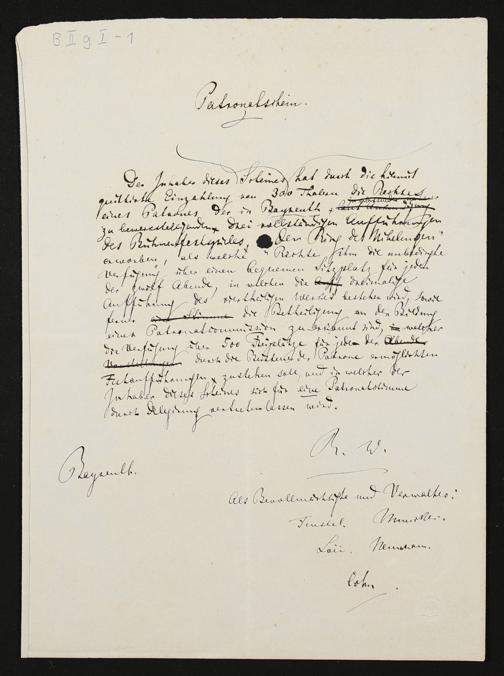 B II g I - 1
Patronatschein.
Der Inhaber dieses Scheines hat durch die hiermit
quittirte Einzahlung von 300 Thalern die Rechte
eines Patrones der in Bayreuth
zu bewerkstelligenden drei vollständigen Aufführungen
des Bühnenfestspieles, "Der Ring des Nibelungen"
erworben, als welche Rechte ihm die unbedingte
Verfügung über einen bequemen Sitzplatz für jeden
der zwölf Abende, in welchen die dreimalige
Aufführung des viertheiligen Werkes bestehen wird, sowie
ferner die Betheiligung an der Bildung
einer Patronatcommission zuerkannt sind, welcher
die Verfügung über 500 Freiplätze für jede der
durch die Beisteuer der Patrone ermöglichten
Festaufführungen zustehen soll, und in welcher der
Inhaber dieses Scheines sich für eine Patronatstimme
durch Delegirung vertreten lassen wird.
R. W.
Bayreuth.
Als Bevollmächtigte und Verwalter:
Feustel. Muncker.
Cohn.